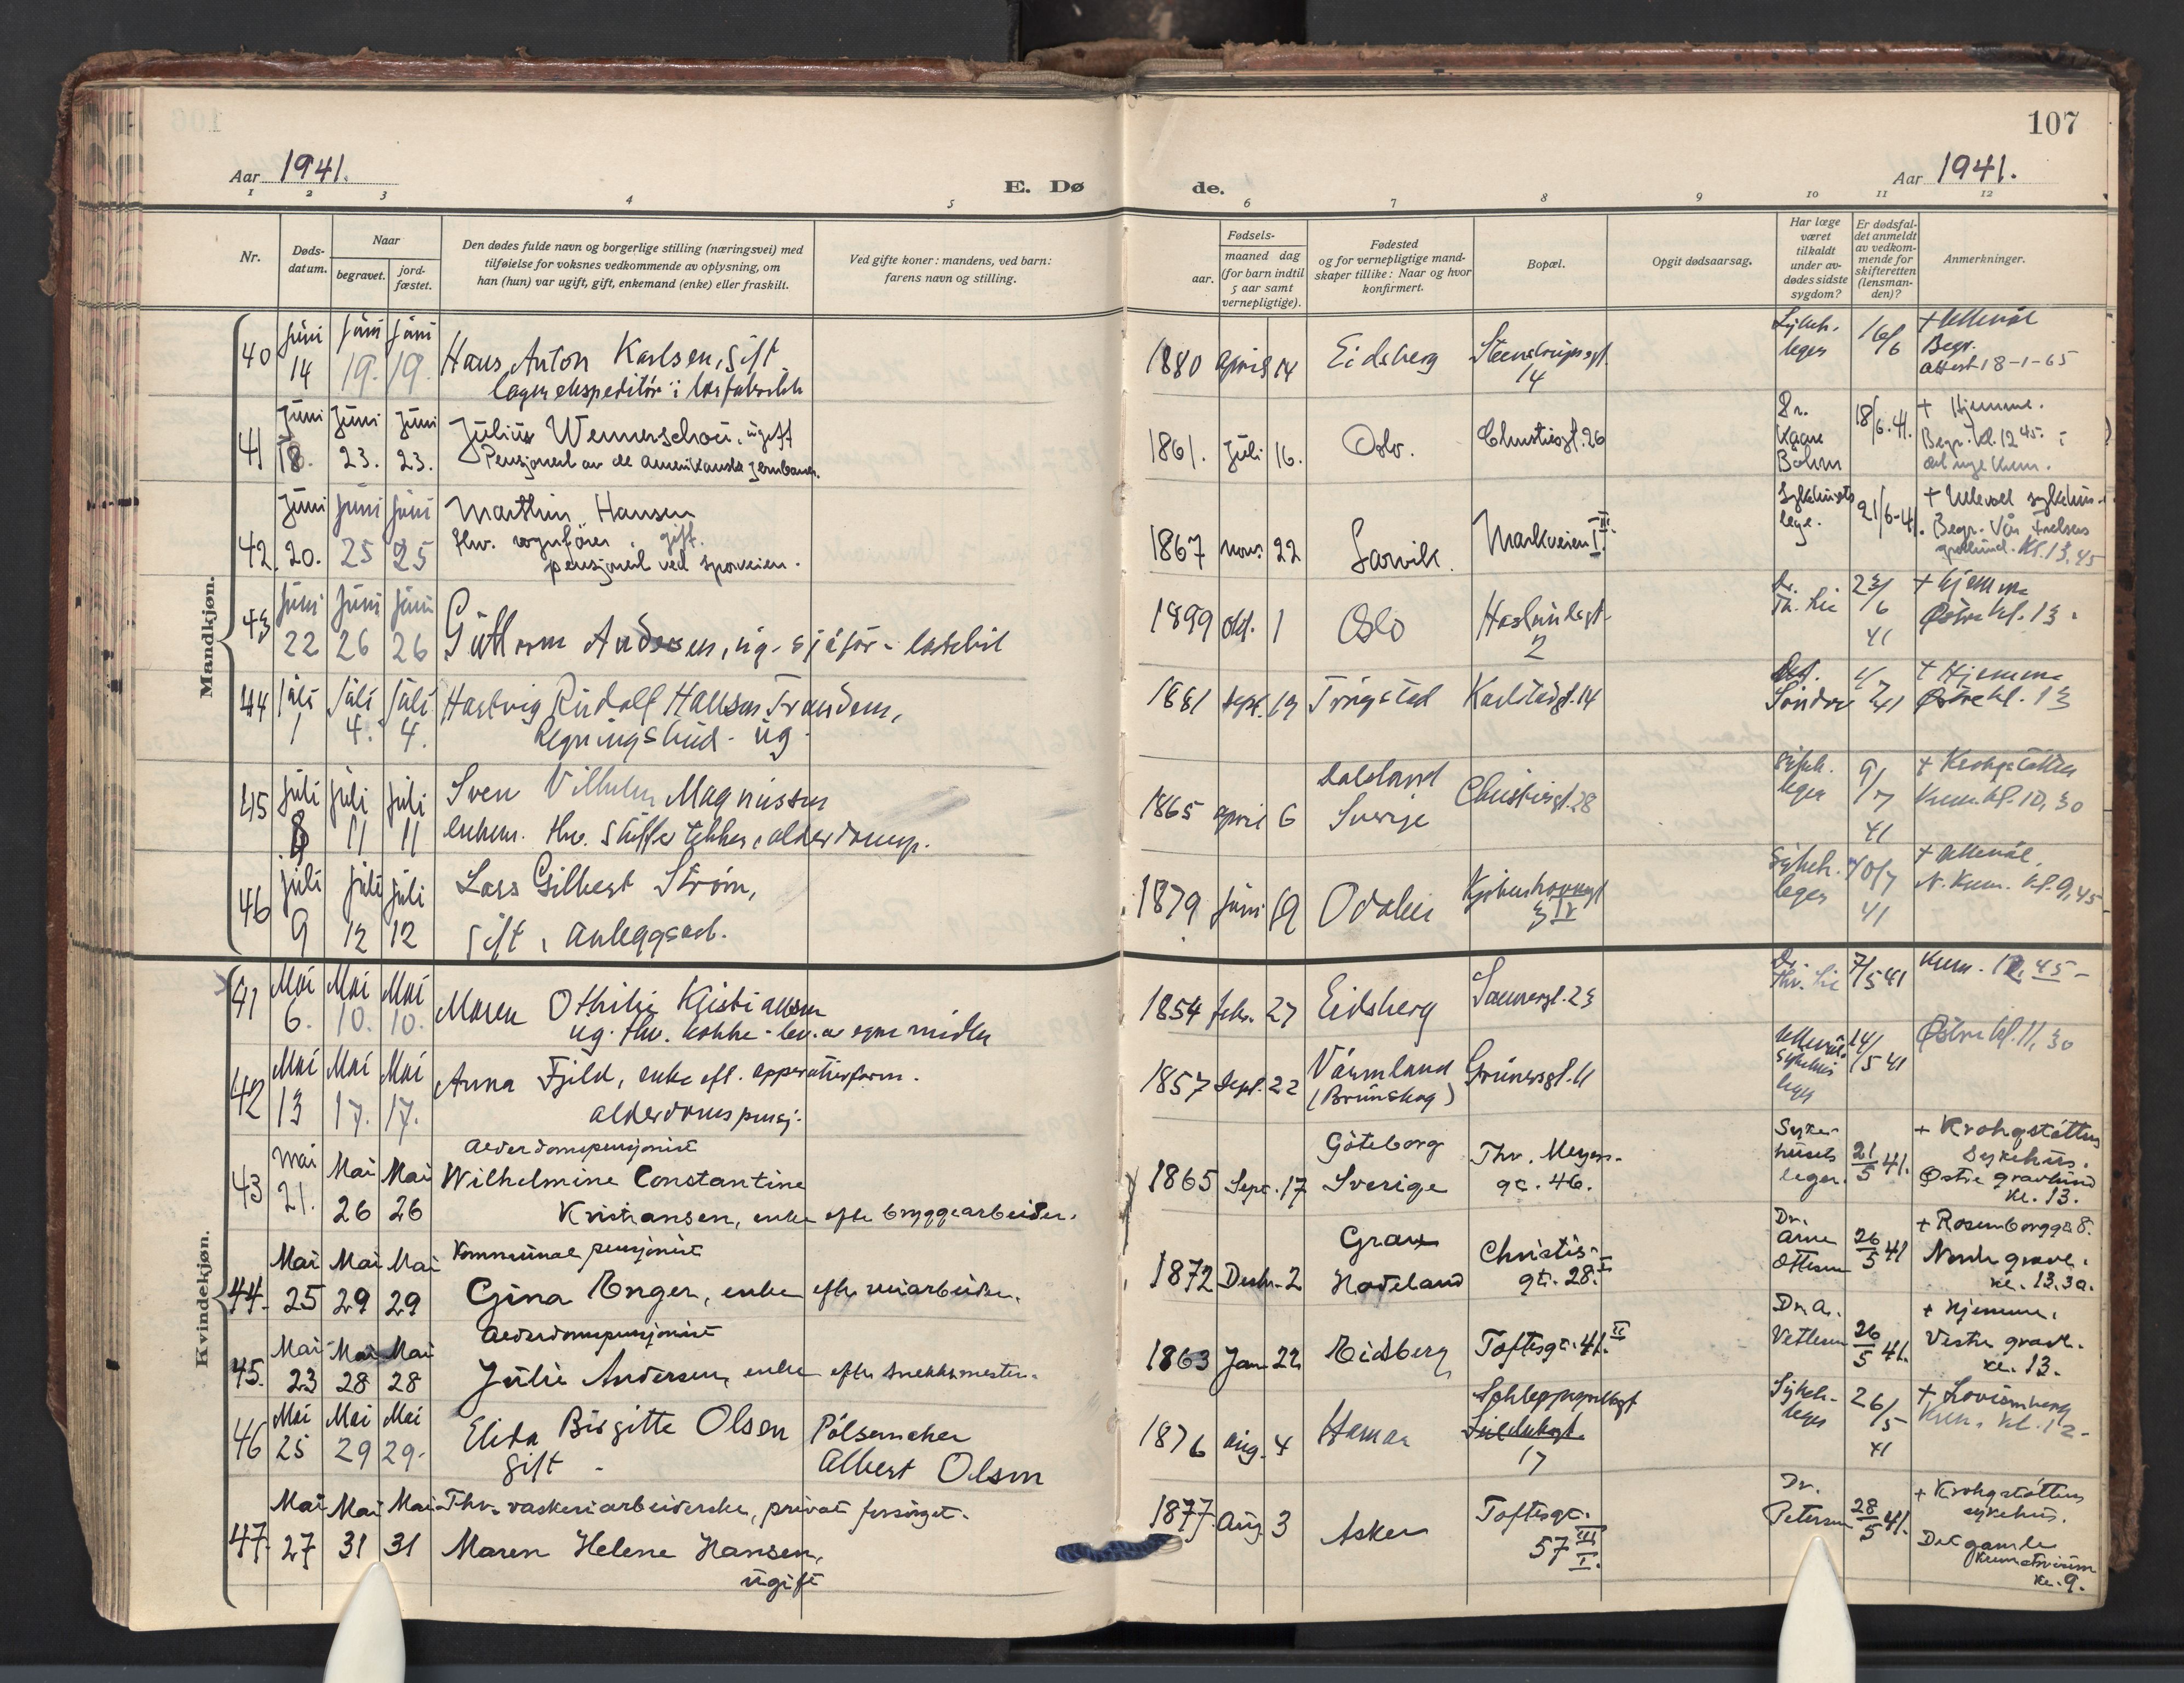 107
Aar 1941.
E. Dø
de.
Aar 1941.
1 2 3 4 5 6 7 8 9 10 11 12
Nr.
Døds-
datum.
Naar
begravet.
jord-
fæstet.
Den dødes fulde navn og borgerlige stilling (næringsvei) med
tilføielse for voksnes vedkommende av oplysning, om
han (hun) var ugift, gift, enkemand (enke) eller fraskilt.
Ved gifte koner: mandens, ved barn:
farens navn og stilling.
Fødsels-
aar.
maaned dag
(for barn indtil
5 aar samt
vernepligtige).
Fødested
og for vernepligtige mand-
skaper tillike: Naar og hvor
konfirmert.
Bopæl.
Opgit dødsaarsag.
Har læge
været
tilkaldt
under av-
dødes sidste
sygdom?
Er dødsfal-
det anmeldt
av vedkom-
mende for
skifteretten
(lensman-
den)?
Anmerkninger.
Mandkjøn.
40 Juni 14 Juni 19. Juni 19. Hans Anton Karlsen, gift.
lagerekspeditør i
1880 april 14 Eidsberg Steenstrupsgt. 14
Sykeh. leger 16/6 + Ullevål
Begr.
attest 18-1-65
41 Juni 18. Juni 23. Juni 23. Julius Wennerschou, ugift
Pensjonert av de Amerikanske Jernbaner.
1861. Juli 16. Oslo. Christiesgt. 26
Dr. Kaare Bøhm 18/6.41. + Hjemme.
Begr. kl. 12 45. i
det nye krem.
42. Juni 20. Juni 25 Juni 25 Marthin Hansen
thv. vognfører, gift.
pensjonert ved sporveien.
1867 nov. 22 Larvik. Markveien 1 III
Sykehusets lege. 21/6-41. + Ullevål sykehus.
Begr. Vår Frelsers
gravlund. Kl. 13,45
43 Juni 22 Juni 26 Juni 26 Guttorm Andersen, ug. sjåfør - lastebil
1899 okt. 1 Oslo 2
Dr. Th. Lie 23/6 41 + hjemme
Østre kl. 13.
44 Juli 1 Juli 4. Juli 4. Hartvig Rudolf Hansen Trandem,
Regningsbud. ug.
1881 sept. 13 Trøgstad Karlstadgt. 14
1/7 41 + Hjemme
Østre kl. 13
45 juli 8 juli 11 juli 11 Sven Vilhelm Magnussen
enkem. thv. skiffertekker, alderdomsp.
1865 april 6 Dalsland
Sverige Christiesgt. 28
Sykeh. leger 9/7 41 + Krohgstøtten
Krem. kl. 10,30
46 juli 9 juli 12 juli 12 Lars Gilbert Strøm,
gift, anleggsarb.
1879 juni 19 Odalen Kjøbenhavnsgt 3 IV
Sykeh. leger 10/7 41 + Ullevål.
N. Krem. kl. 9,45
Kvindekjøn.
41 Mai 6. Mai 10. Mai 10. Maren Othilie Kristiansen
ug. thv. kokke - lev. av egne midler
1854 febr. 27 Eidsberg Sannergt. 23
Dr. Thv. Lie 7/5 41 Krem. 12,45 -
42 Mai 13 Mai 17. Mai 17. Anna Fjeld, enke eft.
alderdomspensj.
1857 Sept. 22 Värmland
(Brunskog) Grünersgt. 11
Ullevål sykehus leger 14/5 41 Østre kl. 11,30
43 Mai 21. Mai 26 Mai 26 Alderdomspensjonist
Wilhelmine Constantine
Kristiansen, enke efter bryggearbeider.
1865 Sept. 17 Göteborg
Sverige Thv. Meyers-
gt. 46.
Syke-
husets
leger. 21/5 41. + Krohgstøttens
Sykehus.
Østre gravlund
Kl. 13.
44. Mai 25 Mai 29 Mai 29 Kommunal pensjonist
Gina Enger, enke efter veiarbeider.
1872 Desbr. 2 Gran
Hadeland Christies-
gt. 28. I
Dr. Arne Ottesen 26/5 41 + Rosenborggt. 8.
Nordre gravl.
kl. 13.30.
45. Mai 23 Mai 28 Mai 28 Alderdomspensjonist
Julie Andersen, enke efter snekkermester.
1863 Jan. 22 Eidsberg Toftesgt. 41. II
Dr. A. Vetlesen 26/5 41. + Hjemme.
Vestre gravl.
kl. 13.
46 Mai 25 Mai 29 Mai 29. Elida Birgitte Olsen Pølsemaker
gift - Albert Olsen
1876 aug. 4 Hamar Schleppegrellsgt
17
Sykeh. leger 26/5 41 + Lovisenberg
Krem. kl. 12 -
47. Mai 27 Mai 31 Mai 31 Thv. vaskeriarbeiderske, privat forsørget.
Maren Helene Hansen,
ugift
1877. Aug. 3 Asker Toftesgt.
57 III I.
Dr. Petersen 28/5 41. + Krohgstøttens
sykehus.
Det gamle
krematorium
kl. 9.